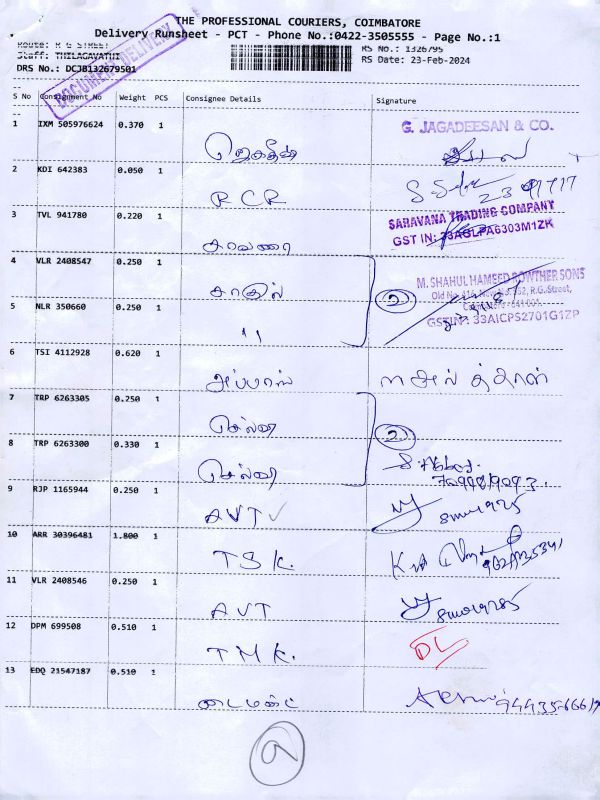 THE PROFESSIONAL COURIERS, COIMBATORE
Delivery Runsheet - PCT - Phone No.:0422-3505555 - Page No.:1
Route: R G STREET
RS No.: 1326795
Staff: THILAGAVATHI
RS Date: 23-Feb-2024
DRS No.: DCJB132679501
DOCUMENT DELIVERY
S No Consignment No Weight PCS Consignee Details Signature
1 IXM 505976624 0.370 1
ஜெகதீஸ்
G. JAGADEESAN & CO.
2 KDI 642383 0.050 1
RCR
3 TVL 941780 0.220 1
SARAVANA TRADING COMPANY
GST IN: 33AGLPA6303M1ZK
4 VLR 2408547 0.250 1
சாகுல்
②
M. SHAHUL HAMEED ROWTHER SONS
5 NLR 350660 0.250 1
"
GSTIN : 33AICPS2701G1ZP
6 TSI 4112928 0.620 1
அப்பாஸ்
7 TRP 6263305 0.250 1
செல்வா
②
8 TRP 6263300 0.330 1
செல்வா
9 RJP 1165944 0.250 1
AVT ✓
10 ARR 30396481 1.800 1
TSK.
11 VLR 2408546 0.250 1
AVT
12 DPM 699508 0.510 1
TMK.
DL
13 EDQ 21547187 0.510 1
டைமண்ட்